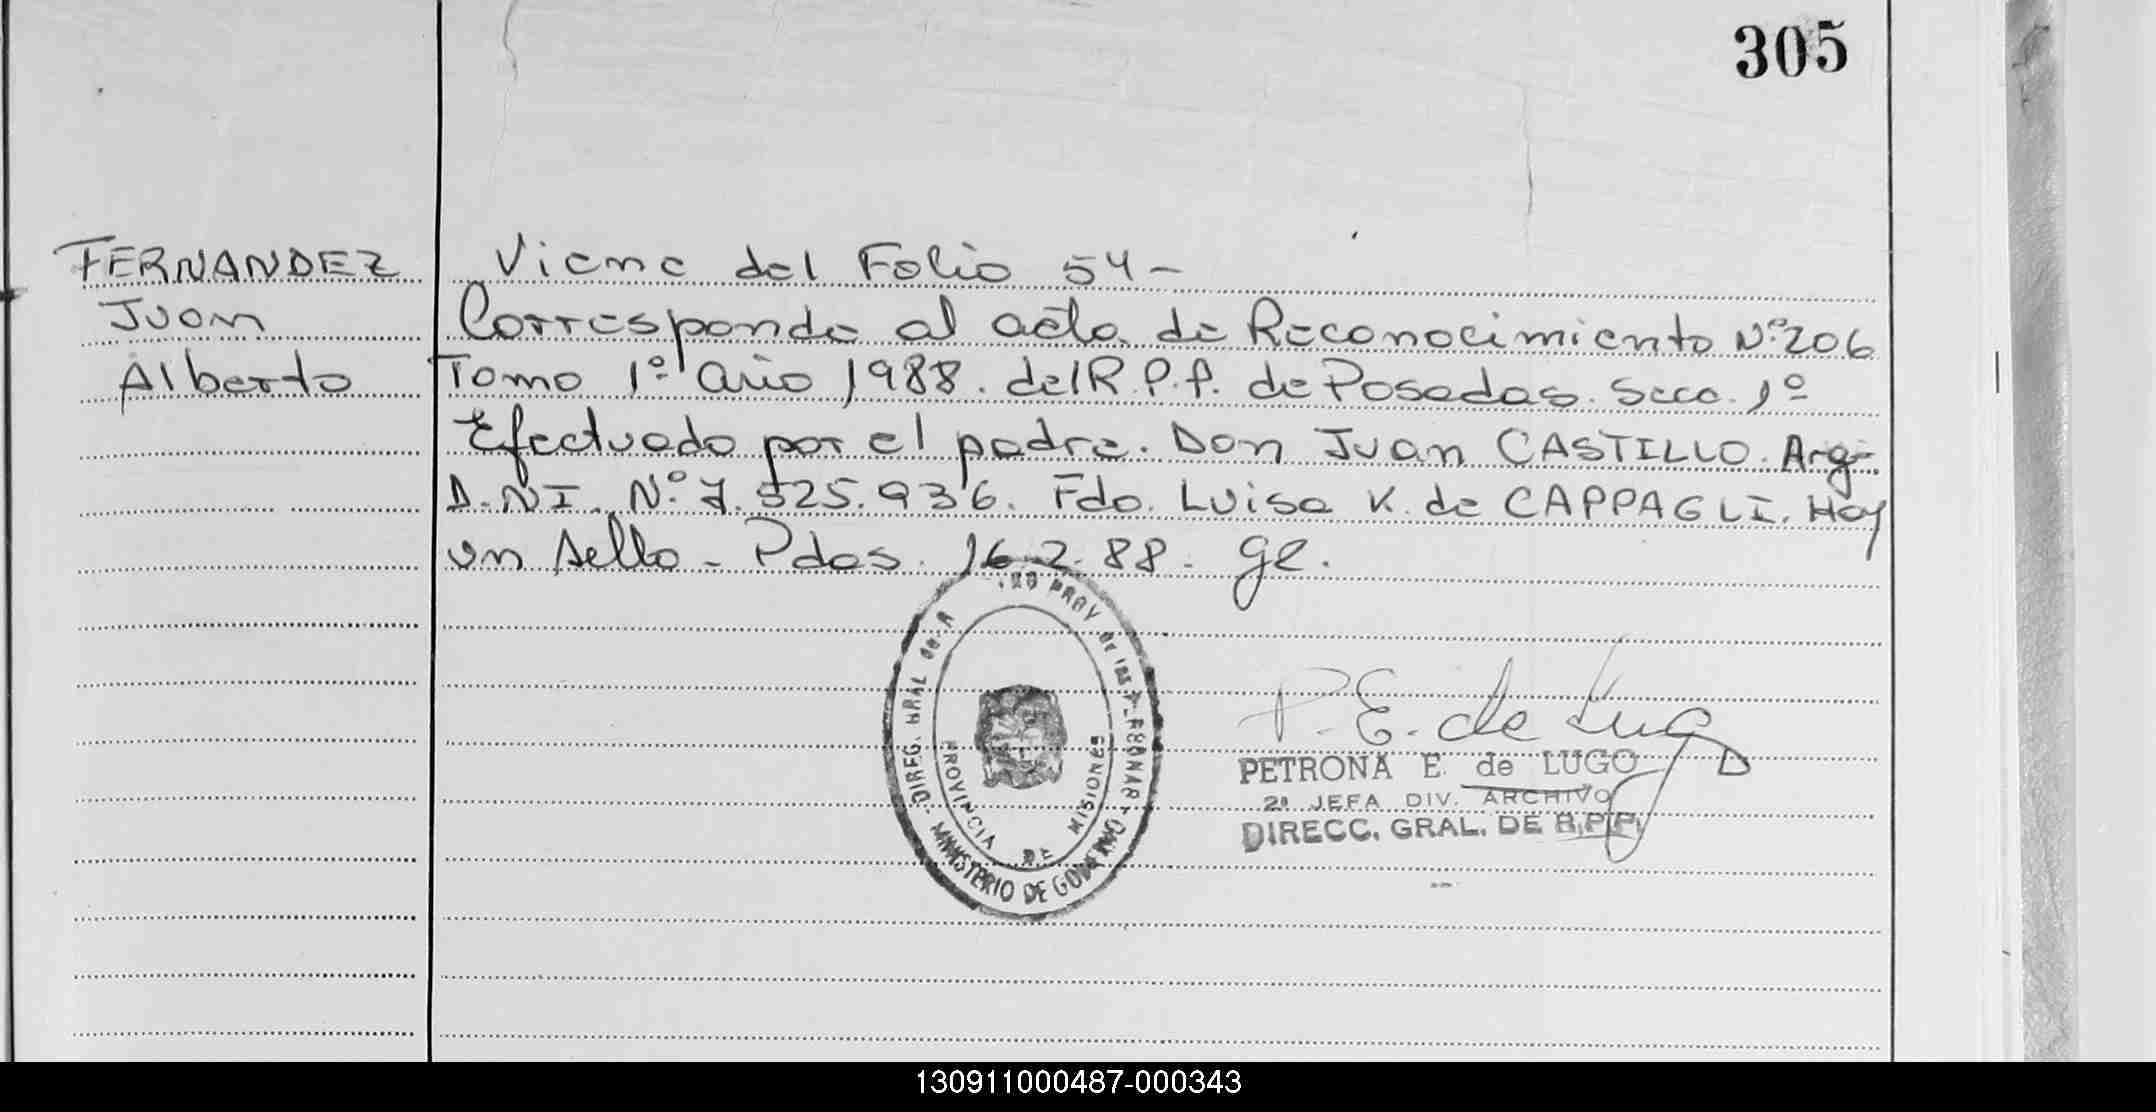 305
FERNANDEZ
Juan
Alberto
Viene del Folio 54 -
Corresponde al acta de Reconocimiento Nº 206
Tomo 1º año 1988. del R.P.P. de Posadas. Secc. 1º
Efectuado por el padre. Don Juan CASTILLO. Arg-
D.NI. Nº 7.525.936. Fdo. Luisa K. de CAPPAGLI. Hay
un sello - Pdas. 16-2-88. ge.
DIREG. GRAL de PROV de las
MINISTERIO DE GOBIERNO
PROVINCIA DE MISIONES
P. E. de Lugo
PETRONA E. de LUGO
2ª JEFA DIV. ARCHIVO
DIRECC. GRAL. DE R.P.P.
130911000487-000343